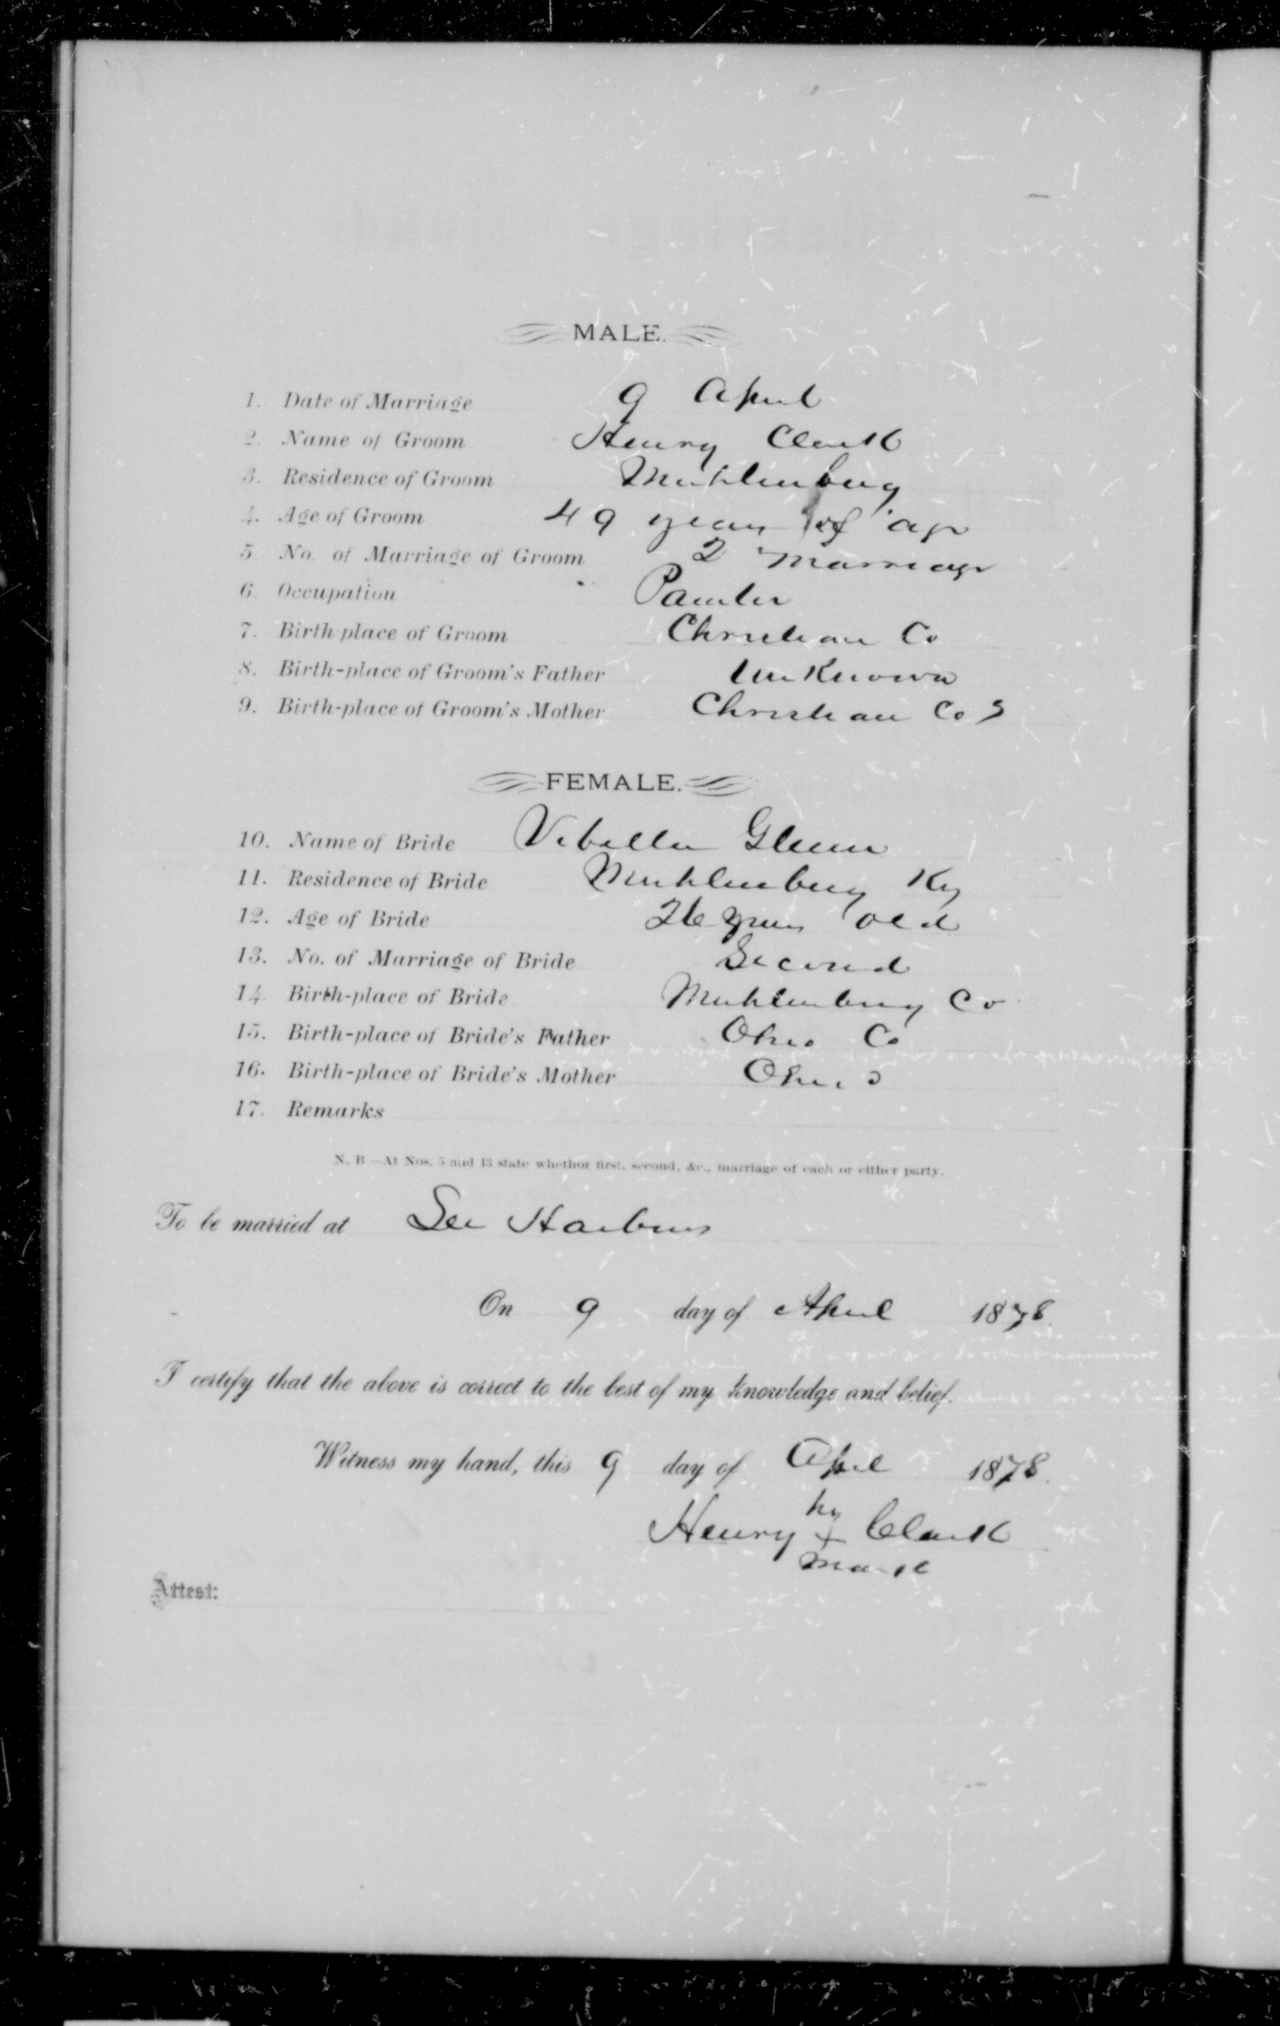 MALE.
1. Date of Marriage 9 April
2. Name of Groom Henry Clark
3. Residence of Groom Muhlenberg
4. Age of Groom 49 years of age
5 No. of Marriage of Groom 2 marriage
6. Occupation Painter
7. Birth-place of Groom Christian Co
8. Birth-place of Groom's Father Unknown
9. Birth-place of Groom's Mother Christian Co
FEMALE.
10. Name of Bride Glenn
11. Residence of Bride Muhlenberg Ky
12. Age of Bride 26 years old
13. No. of Marriage of Bride Second
14. Birth-place of Bride Muhlenberg Co
15. Birth-place of Bride's Father Ohio Co
16. Birth-place of Bride's Mother Ohio
17. Remarks
N. B.—At Nos. 5 and 13 state whether first, second, &c., marriage of each or either party.
To be married at
On 9 day of April 1878.
I certify that the above is correct to the best of my knowledge and belief.
Witness my hand, this 9 day of April 1878.
his
Henry + Clark
mark
Attest: